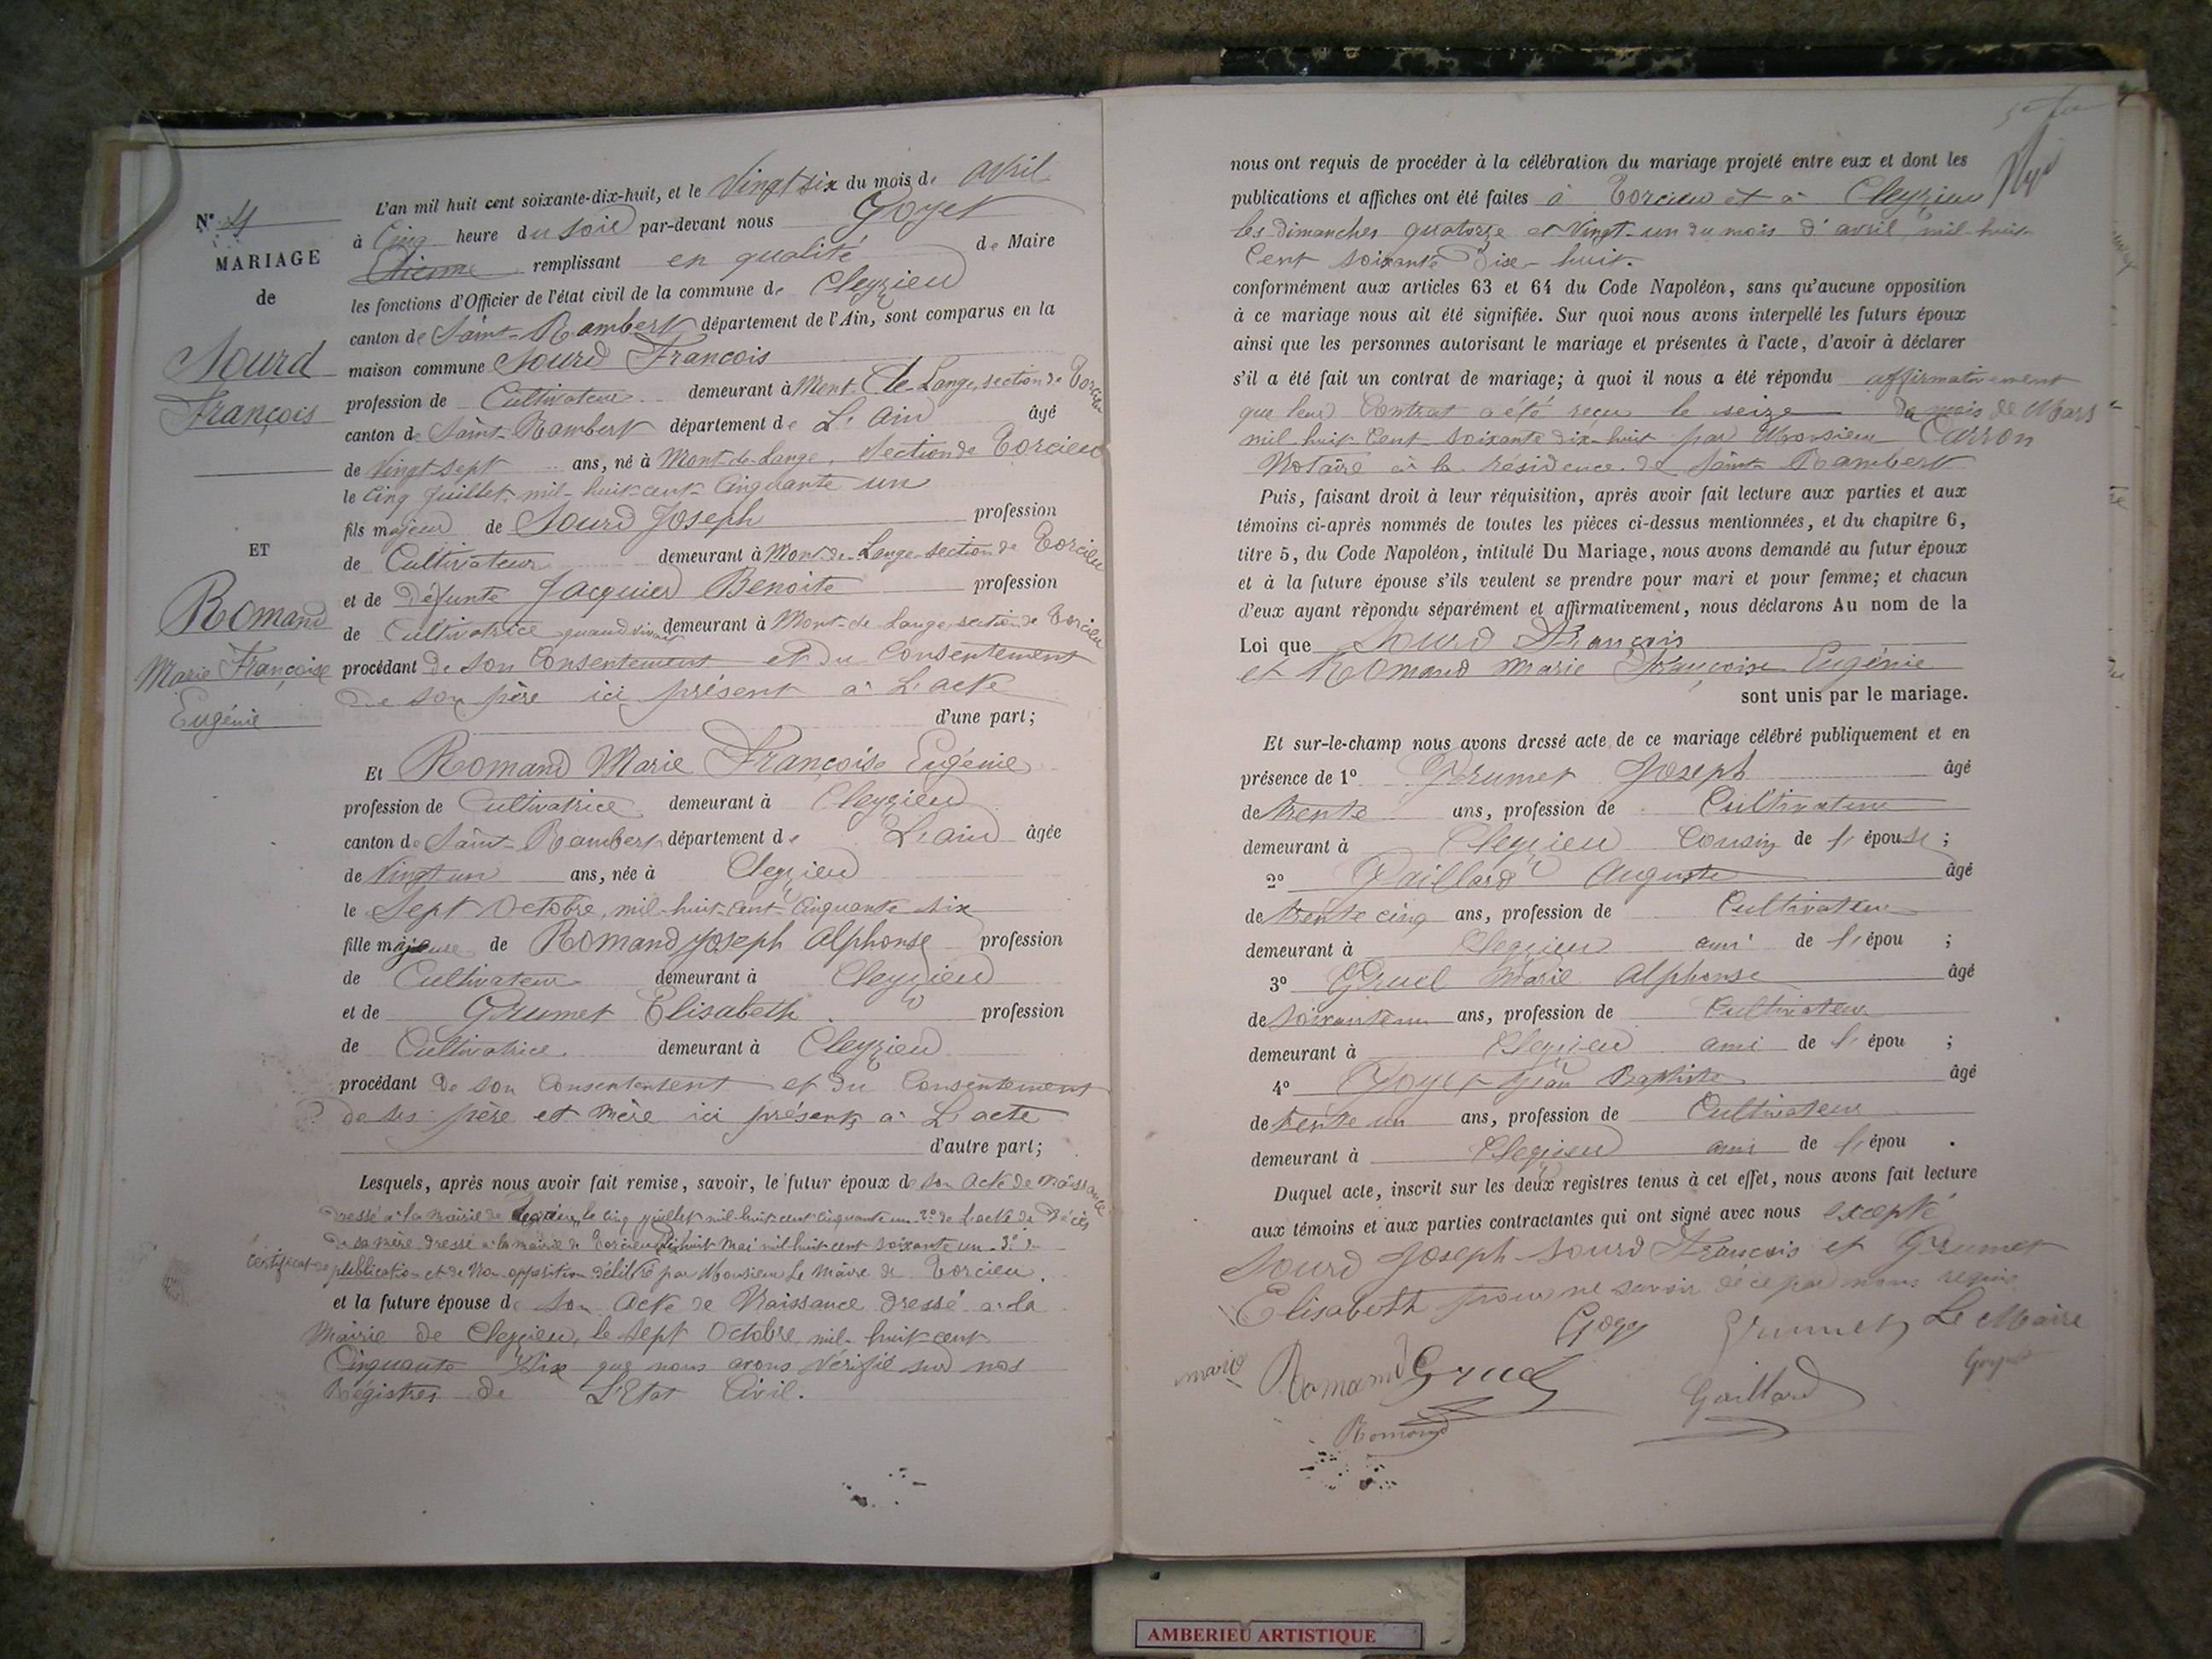 N° 4
MARIAGE
de
Sourd
François
ET
Romand
Marie Françoise
Eugénie
L'an mil huit cent soixante-dix-huit, et le Vingt six du mois de avril
à Cinq heure du soir par-devant nous Goyet
Etienne remplissant en qualité de Maire
les fonctions d'Officier de l'état civil de la commune de Cleyzieu
canton de Saint-Rambert département de l'Ain, sont comparus en la
maison commune Sourd François
profession de Cultivateur demeurant à Mont-de-Lange, section de Torcieu
canton de Saint-Rambert département de L'Ain âgé
de Vingt sept ans, né à Mont-de-Lange, Section de Torcieu
le Cinq Juillet mil-huit-cent-Cinquante un
fils majeur de Sourd Joseph profession
de Cultivateur demeurant à Mont-de-Lange-section de Torcieu
et de Défunte Jacquier Benoite profession
de Cultivatrice quand vivait demeurant à Mont-de-Lange section de Torcieu
procédant de son Consentement et du Consentement
de son père ici présent à L'acte
d'une part;
Et Romand Marie Françoise Eugénie
profession de Cultivatrice demeurant à Cleyzieu
canton de Saint-Rambert département de L'ain âgée
de Vingt un ans, née à Cleyzieu
le Sept Octobre, mil-huit-cent Cinquante six
fille majeure de Romand Joseph Alphonse profession
de Cultivateur demeurant à Cleyzieu
et de Grumet Elisabeth profession
de Cultivatrice demeurant à Cleyzieu
procédant de son Consentement et du Consentement
de ses père et mère ici présents à L'acte
d'autre part;
Lesquels, après nous avoir fait remise, savoir, le futur époux de son Acte de Naissance
dressé à la mairie de le cinq juillet mil-huit-cent cinquante un 2° de L'acte de Décès
de sa mère dressé à la mairie de Torcieu dix huit Mai mil huit cent soixante un 3° du
certificat de publication et de Non opposition délivré par Monsieur Le Maire de Torcieu.
et la future épouse de son Acte de Naissance dressé à la
Mairie de Cleyzieu, le sept Octobre mil-huit cent
Cinquante Six que nous avons Vérifié sur nos
Régistres de L'Etat Civil.
nous ont requis de procéder à la célébration du mariage projeté entre eux et dont les
publications et affiches ont été faites à Torcieu et à Cleyzieu
les Dimanches quatorze et Vingt-un du mois d'avril mil-huit
Cent soixante Dise-huit.
conformément aux articles 63 et 64 du Code Napoléon, sans qu'aucune opposition
à ce mariage nous ait été signifiée. Sur quoi nous avons interpellé les futurs époux
ainsi que les personnes autorisant le mariage et présentes à l'acte, d'avoir à déclarer
s'il a été fait un contrat de mariage; à quoi il nous a été répondu affirmativement
que leur Contrat a été reçu le seize du mois de Mars
mil-huit-Cent-soixante dix-huit par Monsieur Carron
Notaire à la résidence de Saint Rambert
Puis, faisant droit à leur réquisition, après avoir fait lecture aux parties et aux
témoins ci-après nommés de toutes les pièces ci-dessus mentionnées, et du chapitre 6,
titre 5, du Code Napoléon, intitulé Du Mariage, nous avons demandé au futur époux
et à la future épouse s'ils veulent se prendre pour mari et pour femme; et chacun
d'eux ayant rèpondu séparément et affirmativement, nous déclarons Au nom de la
Loi que Sourd François
et Romand Marie Françoise Eugénie
sont unis par le mariage.
Et sur-le-champ nous avons dressé acte de ce mariage célébré publiquement et en
présence de 1° Grumet Joseph âgé
de trente ans, profession de Cultivateur
demeurant à Cleyzieu Cousin de l'épouse;
2° Gaillard Auguste âgé
de trente cinq ans, profession de Cultivateur
demeurant à Cleyzieu ami de l'épou ;
3° Gruel Marie Alphonse âgé
de soixante un ans, profession de Cultivateur
demeurant à Cleyzieu ami de l'épou ;
4° Goyet Jean Baptiste âgé
de trente un ans, profession de Cultivateur
demeurant à Cleyzieu ami de l'épou .
Duquel acte, inscrit sur les deux registres tenus à cet effet, nous avons fait lecture
aux témoins et aux parties contractantes qui ont signé avec nous excepté
Sourd Joseph Sourd François et Grumet
Elisabeth pour ne savoir de ce par nous requis
Goyet Grumet Le Maire
marie Romand Gruel Gaillard Goyet
Romand
AMBERIEU ARTISTIQUE